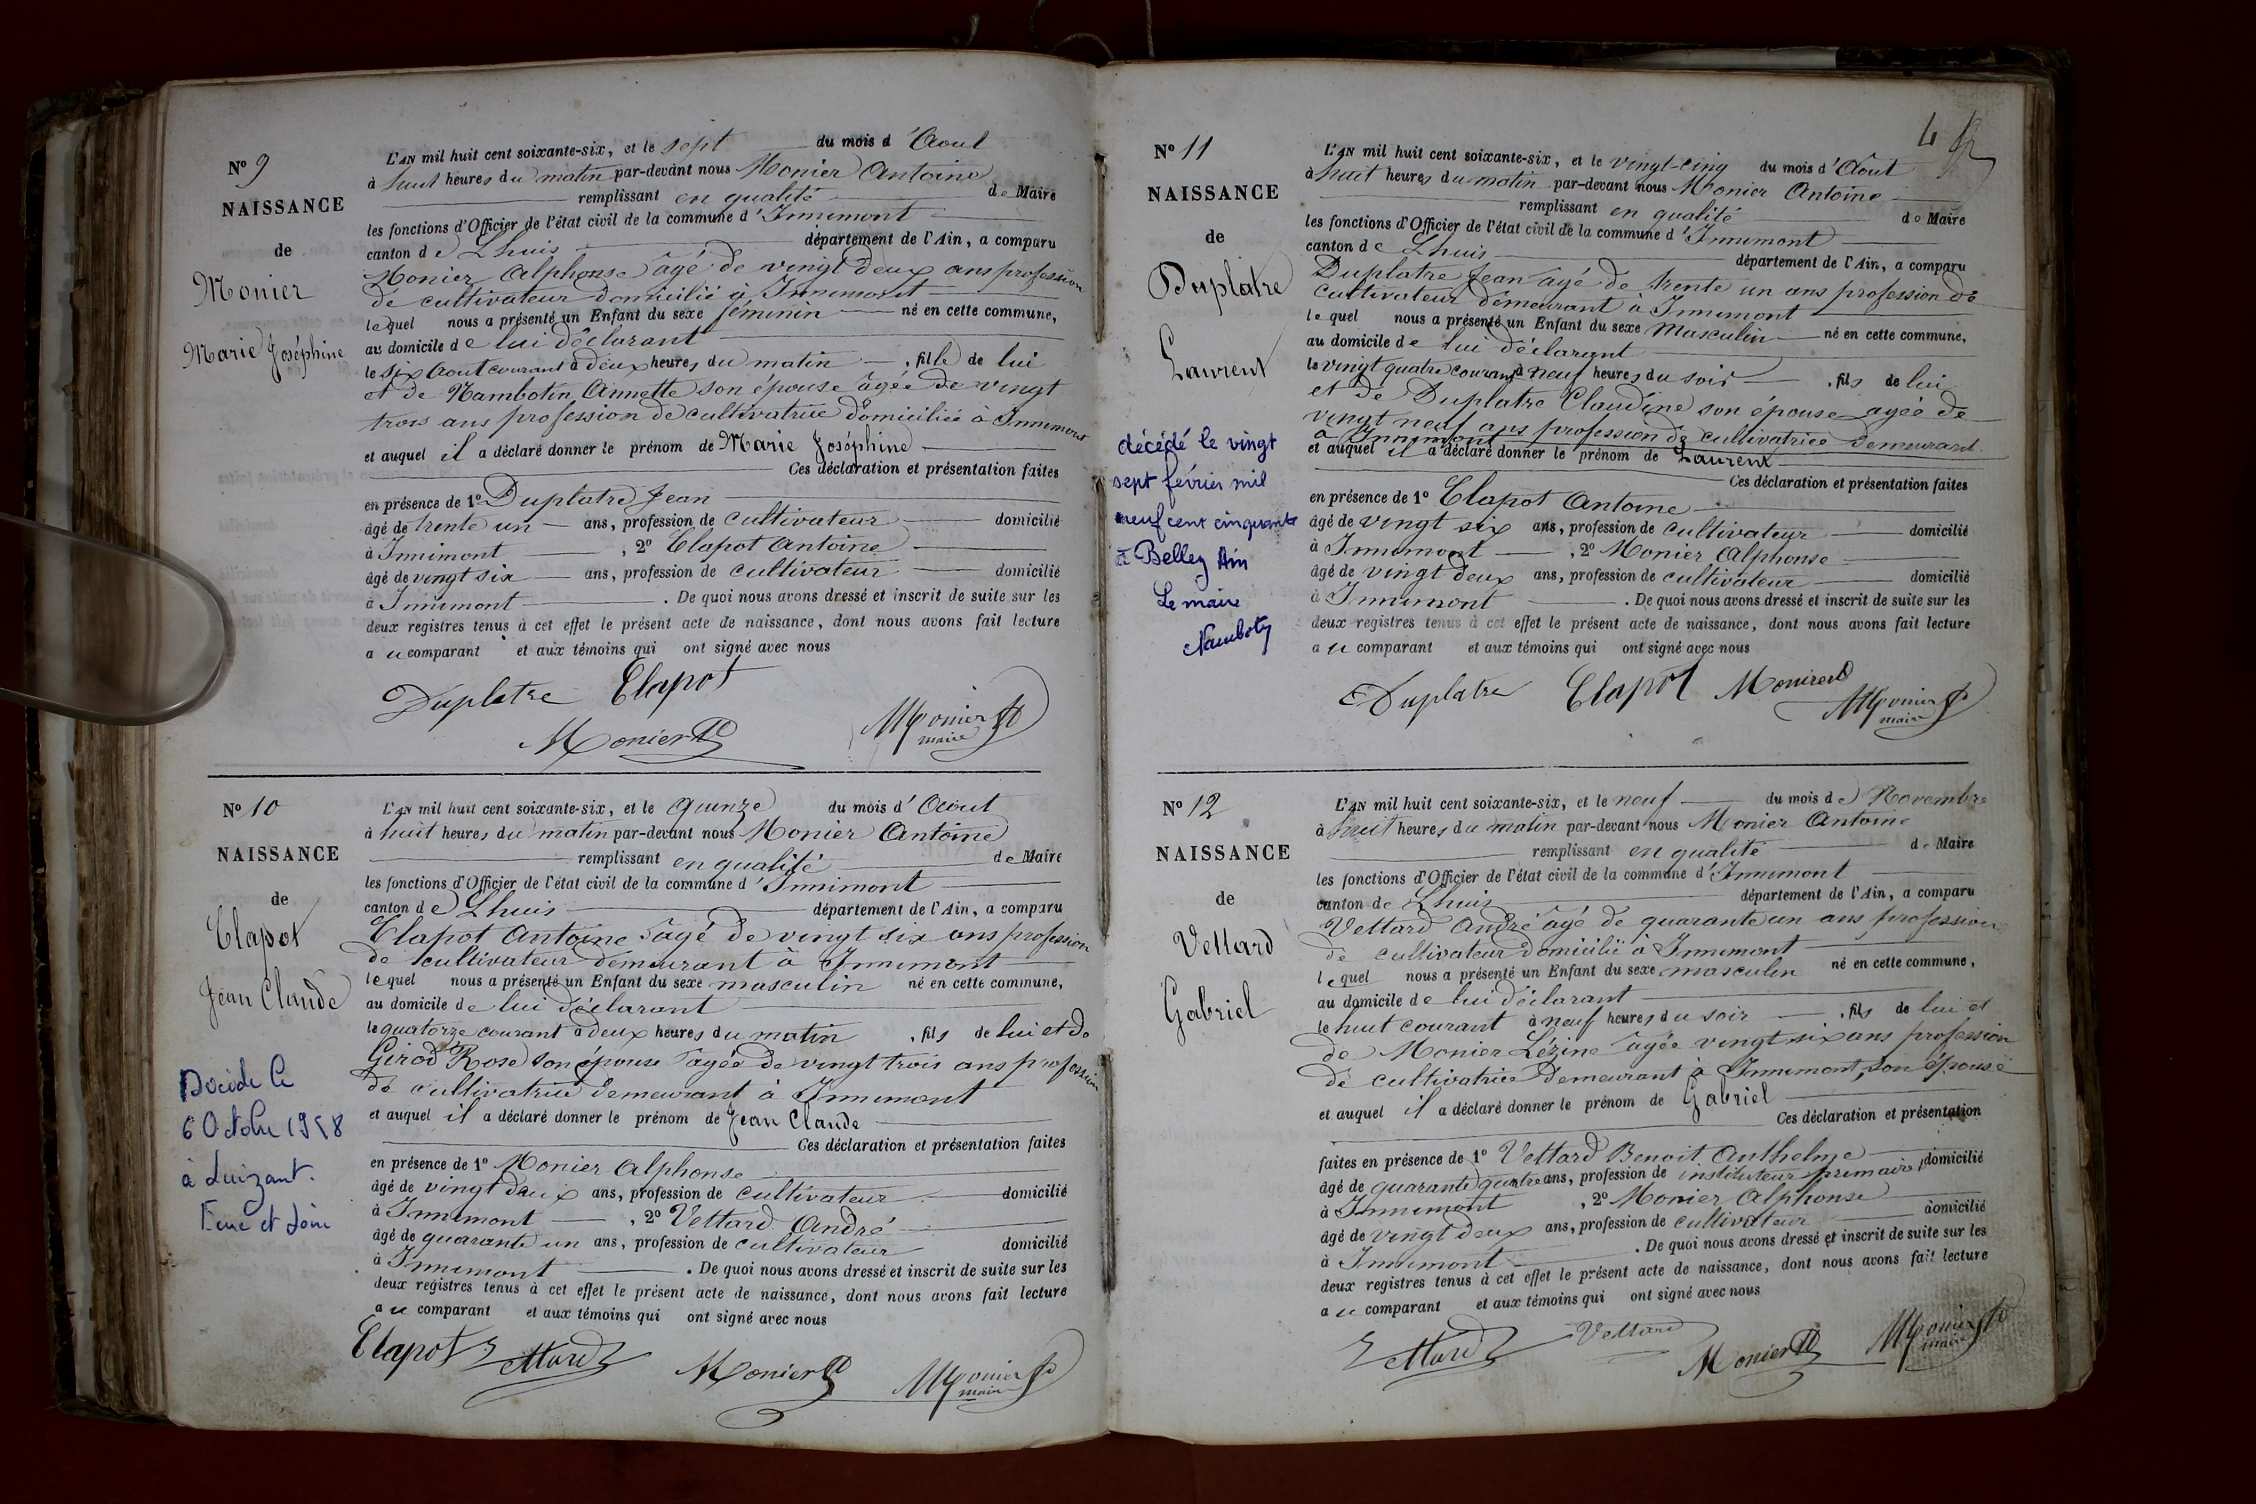 N° 9
NAISSANCE
de
Monier
Marie Joséphine
L'AN mil huit cent soixante-six, et le sept du mois d'Aout
à huit heures du matin par-devant nous Monier Antoine
remplissant en qualité de Maire
les fonctions d'Officier de l'état civil de la commune d'Innimont
canton de Lhuis département de l'Ain, a comparu
Monier Alphonse âgé de vingt deux ans profession
de cultivateur domicilié à Innimont
lequel nous a présenté un Enfant du sexe féminin né en cette commune,
au domicile de lui déclarant
le six Aout courant à deux heures du matin, fille de lui
et de Nambotin Annette son épouse âgée de vingt
trois ans profession de cultivatrice domiciliée à Innimont
et auquel il a déclaré donner le prénom de Marie Joséphine
Ces déclaration et présentation faites
en présence de 1° Duplatre Jean
âgé de trente un ans, profession de cultivateur domicilié
à Innimont, 2° Clapot Antoine
âgé de vingt six ans, profession de cultivateur domicilié
à Innimont. De quoi nous avons dressé et inscrit de suite sur les
deux registres tenus à cet effet le présent acte de naissance, dont nous avons fait lecture
au comparant et aux témoins qui ont signé avec nous
Duplatre Clapot
Monier Monier
maire
N° 10
NAISSANCE
de
Clapot
Jean Claude
Décédé le
6 Octobre 1958
à Luizant.
L'AN mil huit cent soixante-six, et le quinze du mois d'Aout
à huit heures du matin par-devant nous Monier Antoine
remplissant en qualité de Maire
les fonctions d'Officier de l'état civil de la commune d'Innimont
canton de Lhuis département de l'Ain, a comparu
Clapot Antoine âgé de vingt six ans profession
de cultivateur demeurant à Innimont
lequel nous a présenté un Enfant du sexe masculin né en cette commune,
au domicile de lui déclarant
le quatorze courant à deux heures du matin, fils de lui et de
Girod Rose son épouse âgée de vingt trois ans profession
de cultivatrice demeurant à Innimont
et auquel il a déclaré donner le prénom de Jean Claude
Ces déclaration et présentation faites
en présence de 1° Monier Alphonse
âgé de vingt deux ans, profession de cultivateur domicilié
à Innimont, 2° Vettard André
âgé de quarante un ans, profession de cultivateur domicilié
à Innimont. De quoi nous avons dressé et inscrit de suite sur les
deux registres tenus à cet effet le présent acte de naissance, dont nous avons fait lecture
au comparant et aux témoins qui ont signé avec nous
Clapot Vettard Monier Monier
maire
4
N° 11
NAISSANCE
de
Duplatre
Laurent
décédé le vingt
sept février mil
neuf cent cinquante
à Belley Ain
Le maire
L'AN mil huit cent soixante-six, et le vingt-cinq du mois d'Aout
à huit heures du matin par-devant nous Monier Antoine
remplissant en qualité de Maire
les fonctions d'Officier de l'état civil de la commune d'Innimont
canton de Lhuis département de l'Ain, a comparu
Duplatre Jean âgé de trente un ans profession de
cultivateur demeurant à Innimont
lequel nous a présenté un Enfant du sexe Masculin né en cette commune,
au domicile de lui déclarant
le vingt quatre courant à neuf heures du soir, fils de lui
et de Duplatre Claudine son épouse agée de
vingt neuf ans profession de cultivatrice demeurant
à Innimont
et auquel il a déclaré donner le prénom de Laurent
Ces déclaration et présentation faites
en présence de 1° Clapot Antoine
âgé de vingt six ans, profession de cultivateur domicilié
à Innimont, 2° Monier Alphonse
âgé de vingt deux ans, profession de cultivateur domicilié
à Innimont. De quoi nous avons dressé et inscrit de suite sur les
deux registres tenus à cet effet le présent acte de naissance, dont nous avons fait lecture
au comparant et aux témoins qui ont signé avec nous
Duplatre Clapot Monier Monier
maire
N° 12
NAISSANCE
de
Vettard
Gabriel
L'AN mil huit cent soixante-six, et le neuf du mois de Novembre
à huit heures du matin par-devant nous Monier Antoine
remplissant en qualité de Maire
les fonctions d'Officier de l'état civil de la commune d'Innimont
canton de Lhuis département de l'Ain, a comparu
Vettard André âgé de quarante un ans profession
de cultivateur domicilié à Innimont
lequel nous a présenté un Enfant du sexe masculin né en cette commune,
au domicile de lui déclarant
le huit courant à neuf heures du soir, fils de lui et
de Monier Lézine âgée vingt six ans profession
de cultivatrice demeurant à Innimont, son épouse
et auquel il a déclaré donner le prénom de Gabriel
Ces déclaration et présentation
faites en présence de 1° Vettard Benoit Anthelme
âgé de quarante quatre ans, profession de instituteur primaire, domicilié
à Innimont, 2° Monier Alphonse
âgé de vingt deux ans, profession de cultivateur domicilié
à Innimont. De quoi nous avons dressé et inscrit de suite sur les
deux registres tenus à cet effet le présent acte de naissance, dont nous avons fait lecture
au comparant et aux témoins qui ont signé avec nous
Vettard Vettard Monier Monier
maire